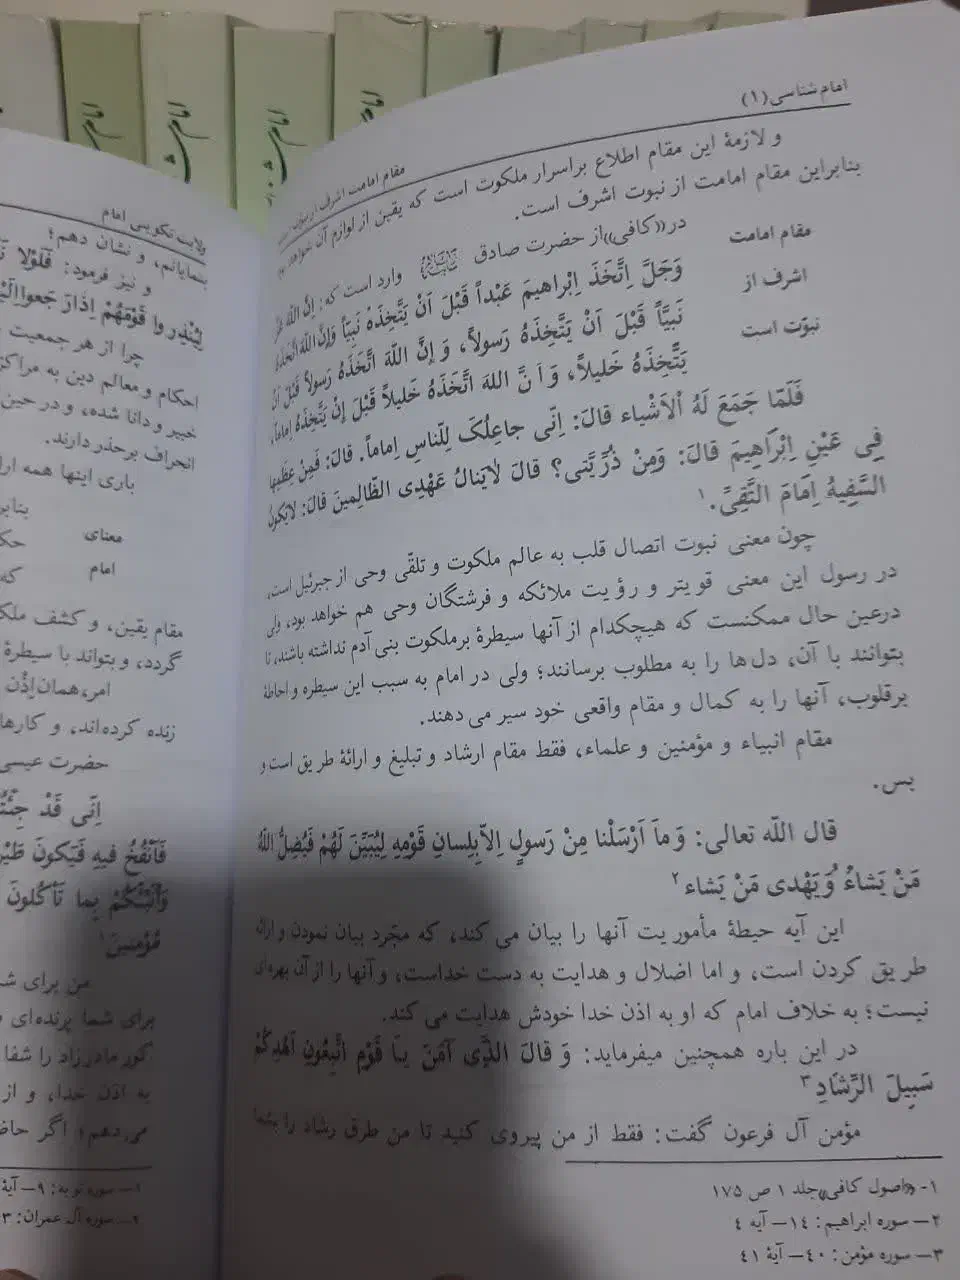 امام شناسی (۱)
مقام امامت اشرف از نبوت
و لازمهٔ این مقام اطلاع براسرار ملکوت است که یقین از لوازم آن
بنابراین مقام امامت از نبوت اشرف است.
مقام امامت
اشرف از
نبوّت است
در «کافی» از حضرت صادق علیه‌السلام وارد است که: إنَّ اللهَ عَزَّ
وَجَلَّ اِتَّخَذَ اِبْراهیمَ عَبْداً قَبْلَ اَنْ یَتَّخِذَهُ نَبیّاً وَاِنَّ اللهَ اتَّخَذَهُ
نَبیّاً قَبْلَ اَنْ یَتَّخِذَهُ رَسولاً، وَ اِنَّ اللهَ اتَّخَذَهُ رَسولاً قَبْلَ اَنْ
یَتَّخِذَهُ خَلیلاً، وَ اَنَّ اللهَ اتَّخَذَهُ خَلیلاً قَبْلَ اِنْ یَتَّخِذَهُ اِماماً،
فَلَمّا جَمَعَ لَهُ اْلاَشْیاء قالَ: اِنّی جاعِلُکَ لِلّناسِ اِماماً. قالَ: فَمِنْ عِظَمِها
فِی عَیْنِ اِبْرَاهِیمَ قالَ: وَمِنْ ذُرِّیَّتی؟ قالَ لاٰیَنالُ عَهْدِی الظّالِمینَ قالَ: لایَکونُ
السَّفِیهُ اِمَامَ التَّقِیِّ.۱
چون معنی نبوت اتصال قلب به عالم ملکوت و تلقّی وحی از جبرئیل است،
در رسول این معنی قویتر و رؤیت ملائکه و فرشتگان وحی هم خواهد بود، ولی
درعین حال ممکنست که هیچکدام از آنها سیطرهٔ برملکوت بنی آدم نداشته باشند، تا
بتوانند با آن، دل‌ها را به مطلوب برسانند؛ ولی در امام به سبب این سیطره و احاطهٔ
برقلوب، آنها را به کمال و مقام واقعی خود سیر می دهند.
مقام انبیاء و مؤمنین و علماء، فقط مقام ارشاد و تبلیغ و ارائهٔ طریق است و
بس.
قال اللّه تعالی: وَ مَا اَرْسَلْنا مِنْ رَسولٍ اِلاّ بِلِسانِ قَوْمِهِ لِیُبَیِّنَ لَهُمْ فَیُضِلُّ اللهُ
مَنْ یَشاءُ وَیَهْدی مَنْ یَشاء۲
این آیه حیطهٔ مأموریت آنها را بیان می کند، که مجّرد بیان نمودن و ارائه
طریق کردن است، و اما اضلال و هدایت به دست خداست، و آنها را از آن بهره‌ای
نیست؛ به خلاف امام که او به اذن خدا خودش هدایت می کند.
در این باره همچنین میفرماید: وَ قالَ الذَّی آمَنَ یا قَوْمِ اتَّبِعُونِ اَهْدِکُمْ
سَبِیلَ الرَّشَادِ۳
مؤمن آل فرعون گفت: فقط از من پیروی کنید تا من طرق رشاد را بشما
۱- «اصول کافی» جلد ۱ ص ۱۷۵
۲— سوره ابراهیم: ۱۴— آیه ۴
۳— سوره مؤمن: ۴۰— آیهٔ ۴۱
ولایت تکوینی امام
بنمایانم، و نشان دهم؛
و نیز فرمود: فَلَوْلا
لِیُنْذِروا قَوْمَهُمْ اِذَارَ جَعوا
چرا از هر جمعیت
احکام و معالم دین به
خبیر و دانا شده، و درحین
انحراف برحذر دارند.
باری اینها همه
معنای
امام
که
مقام یقین، و کشف
گردد، و بتواند با سیطرهٔ
امر، همان اِذْن
زنده کرده‌اند، و
حضرت عیسی
اِنّی قَدْ
فَاَنْفُخُ فیهِ فَیَکونَ
وَاُنَبِّئُکُمْ بِما تَأْکُلونَ
مُؤْمِنینَ
من برای
برای شما پرنده‌ای
کور مادرزاد را شفا
به اذن خدا، و از
می‌دهم؛ اگر
۱— سوره توبه: ۹— آیهٔ
۲— سوره آل عمران: ۳